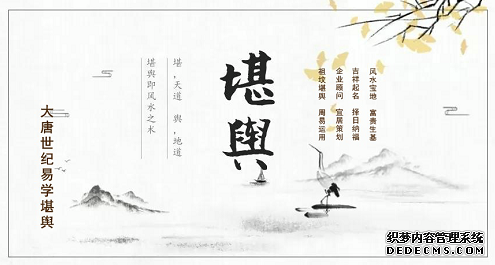 堪舆
堪,天道 舆,地道
堪舆即风水之术
大唐世纪易学堪舆
风水宝地 富贵生基
吉祥起名 择日纳福
企业顾问 宜居策划
祖坟堪舆 周易运用
织梦内容管理系统
DEDECMS.COM